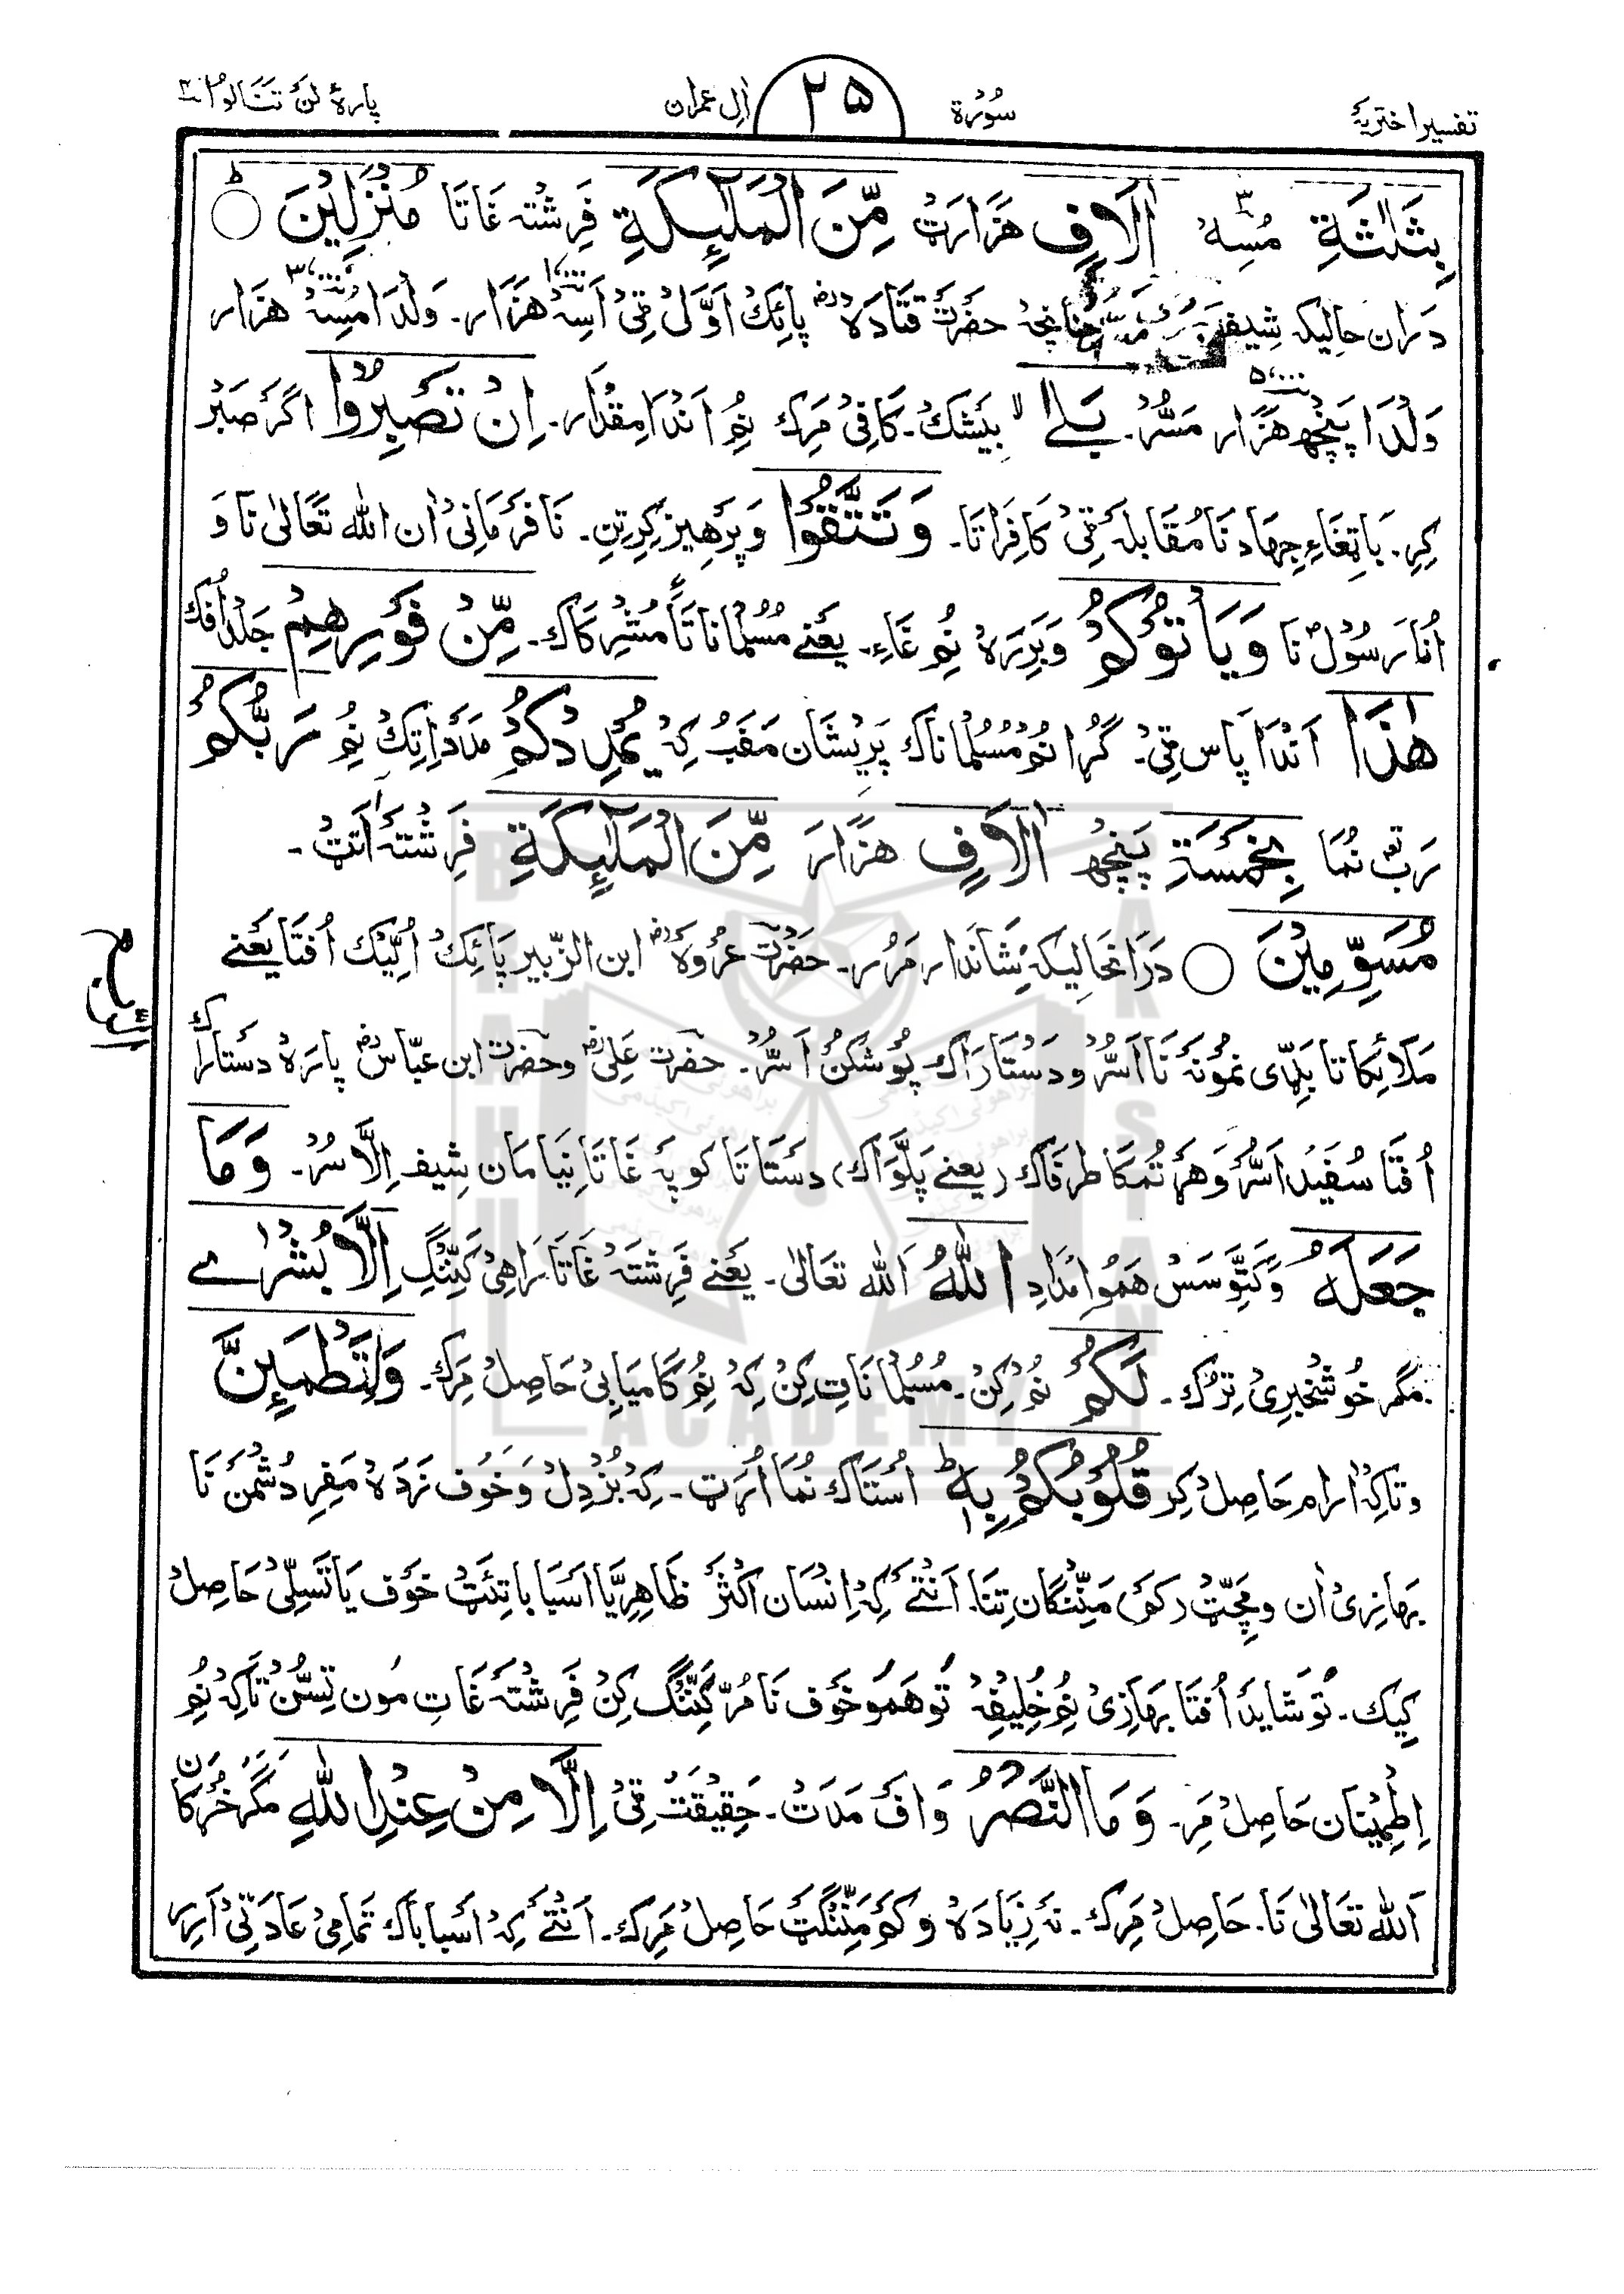 تفسیر اختریۂ سُوْرَۃ ۲۵ اٰلِ عمران پارۂ لَنْ تَنَالُوا
بِثَلٰثَةِ مُسِہْ اٰلَافٍ هَزَارَتْ مِّنَ الْمَلٰٓئِكَةِ فَرِشْتہ غَاتَا مُنْزَلِيْنَ ○
دران حالیکہ شیف چنانچہ حضرت قتادہ پائِک اَوَّل ٹی اَسِہ هَزار۔ وَلْدا مُسِہْ هزار
وَلْدَا پَنْچھ هَزَار مَسُّر۔ بَلٰى لا بیشک۔ کافِی مَرِک نُم اَنْدَا مِقْدَار۔ اِنْ تَصْبِرُوْا اگر صَبْر
کِر۔ بَاتِغَاءِ جِهاد نَا مُقابلہ ٹی کَافِرَاتَا۔ وَتَتَّقُوْا وَپرهیز کِرِتِن۔ نَافَرْمَانِی اَن اللہ تَعَالیٰ نَا وَ
اُنَا رَسُوْل نَا وَيَاْتُوْكُمْ وَبَرِرَہ نُم غَاءِ۔ یعنے مُسُلْمَاناتَا مُشْرِکَاک۔ مِّنْ فَوْرِهِمْ جَلْد اُفک
هٰذَا اَنْدَا پاس ٹی۔ گُڑا نُم مُسُلْماناک پَریْشَان مَفَبُ کِہ يُمْدِدْكُمْ مَدَداتِک نُم رَبُّكُمْ
رَبّ نُمَا بِخَمْسَةِ پَنْچھ اٰلَافٍ هَزَار مِّنَ الْمَلٰٓئِكَةِ فَرِشْتَہ اتَٹ۔
مُسَوِّمِيْنَ ○ دَرَانحَالیکہ نِشَاندار مَرُر۔ حَضْرت عُرْوَہ ابن الزّبیر پَائِک اُلِّیْک اُفتَا یَعْنے
مَلَائِکاتَا پِلِّی نمُونَہ نَا اَسُّر وَدَسْتَارَاک پُوشکُن اَسُّر۔ حضرت عَلی وحَضرت ابن عبّاس پارَہ دستاراک
اُفتَا سُفَیْد اَسُّر وَهَر تُمکا طرفَاک (یعنے پَلَّوَاک) دستاتَا کوپَہ غَاتَا نِیَامَان شِیف اِلَّاسُر۔ وَمَا
جَعَلَهُ وَکتِّوَسَسْ هَمُو امْدَادِ اللّٰهُ اَللہ تَعَالیٰ۔ یَعْنے فَرِشتہ غَاتَا رَاهِی کَنِّنْگ اِلَّا بُشْرٰى
مگر خُوشْخبری تِرْک۔ لَكُمْ نُم کِن۔ مُسُلْمَانَاتِ کِن کِہ نُم کَامیَابِی حَاصِل مَرِک۔ وَلِتَطْمَئِنَّ
وتاکِہ اٰرام حَاصِل کِر قُلُوْبُكُمْ بِهٖ اُسْتَاک نُمَا اُرٹ۔ کِہ بُزْدِل وَخَوْف زَدَہ مَفِر دُشْمن نَا
بَهازِی اَن ومَچِّٹ کَم مَنِّنْگان تِنَا۔ اَنْتئے کِہ اِنْسَان اکْثَر ظَاهِریَّا اَسْبَابَاتیٹ خَوْف یَا تَسلِّی حَاصِل
کِیک۔ تو شَاید اُفتَا بَهازی نُم خُلِیفِہ تو هَمُو خَوْف نَا مُرّ کَنِّنْگ کِن فَرِشْتہ غَاتِ مُون تِسُّن تَاکِہ نُم
اِطْمِیْنَان حَاصِل مَرِ۔ وَمَا النَّصْرُ وَ اَف مَدَتْ۔ حَقِیْقَت ٹی اِلَّا مِنْ عِنْدِ اللّٰهِ مَگر خُڑکَان
اَللہ تَعَالیٰ نَا۔ حَاصِل مَرِک۔ نَہ زِیَادَہ وکَم مَنِّنْگَٹ حَاصِل مَرِک۔ اَنْتئے کِہ اَسْبَاباک تَمامی عَادَتِی اَرِر